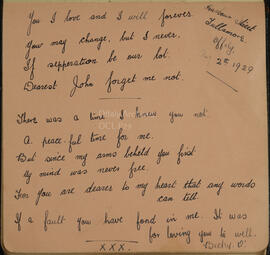 You I love and I will forever.
You may change, but I never.
If sepporation be our lot.
Dearest John forget me not.
Street
Tullamore
Offaly
25 1929
There was a time I knew you not.
A peace-ful time for me.
But since my arms beheld you first
My mind was never free.
For you are dearer to my heart that any words
can tell.
If a fault you have fond in me. It was
for loving you to well.
XXX.